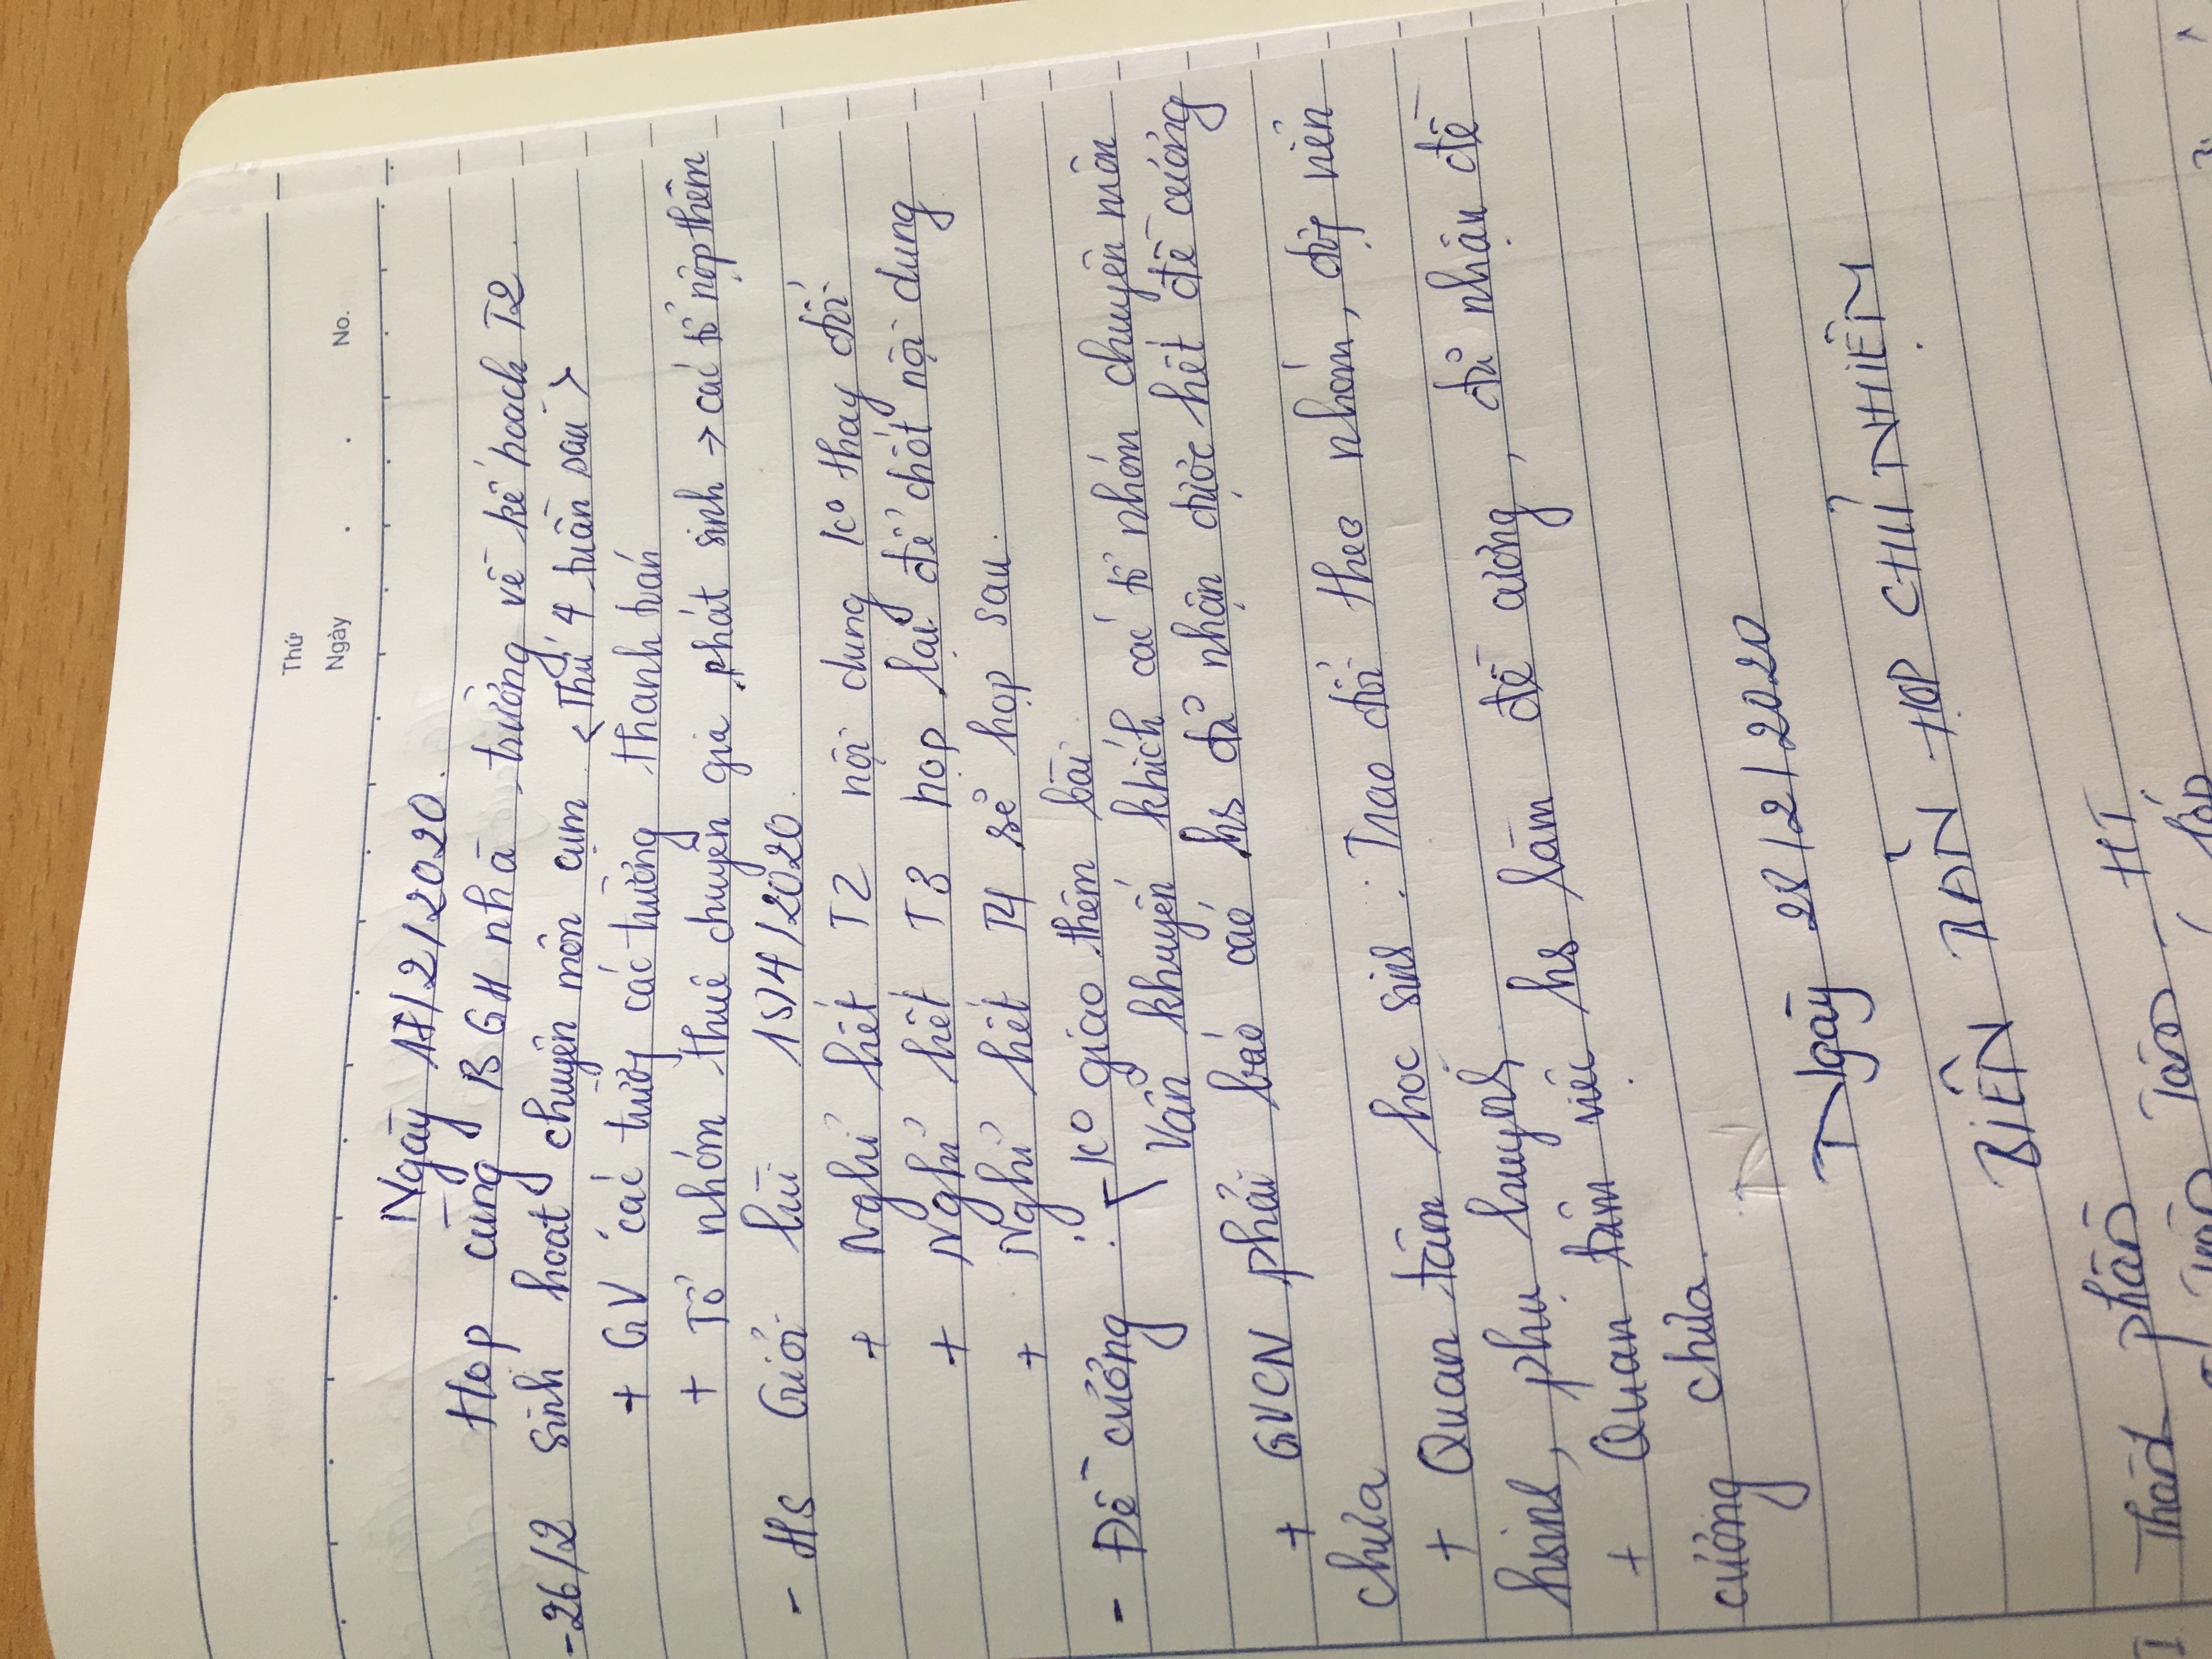 Thứ
Ngày . . No.
Ngày 17/2/2020.
Họp cùng BGH nhà trường về kế hoạch T2.
- 26/2 Sinh hoạt chuyên môn cụm <Thứ 4 tuần sau>
+ GV các trường các trường thanh toán
+ Tổ nhóm thuê chuyên gia phát sinh → các tổ nộp thêm
- HS Giỏi lùi 15/4/2020.
+ Nghỉ hết T2 nội dung ko thay đổi
+ Nghỉ hết T3 họp lại để chốt nội dung
+ Nghỉ hết T4 sẽ họp sau.
- Đề cương : - Ko giao thêm bài
Vẫn khuyến khích các tổ nhóm chuyên môn
+ GVCN phải báo cáo hs đã nhận được hết đề cương
chưa
+ Quan tâm học sinh : Trao đổi theo nhóm, động viên
hsinh, phụ huynh
+ Quan tâm việc hs làm đề cương, đã nhận đề
cương chưa.
Ngày 28/2/2020
BIÊN BẢN HỌP CHỦ NHIỆM
I Thành phần